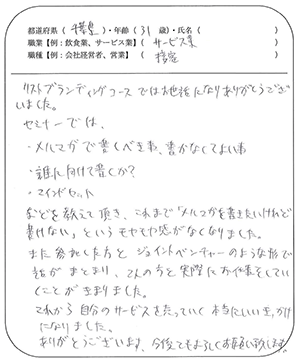 都道府県（ 千葉 ）・年齢（ 31 歳）・氏名（ ）
職業【例：飲食業、サービス業】（ サービス業 ）
職種【例：会社経営者、営業】（ 接客 ）
リストブランディングコースではお世話になりありがとうござ
いました。
セミナーでは、
・メルマガで書くべき事、書かなくてよい事
・誰に向けて書くか？
・マインドセット
などを教えて頂き、これまで「メルマガを書きたいけれど
書けない」というモヤモヤ感がなくなりました。
また参加した方とジョイントベンチャーのような形で
話がまとまり、2人の方と実際にお仕事をしてい
くことがきまりました。
これから自分のサービスを売っていく本当にいいきっかけ
になりました。
ありがとうございます。今後ともよろしくお願い致します。